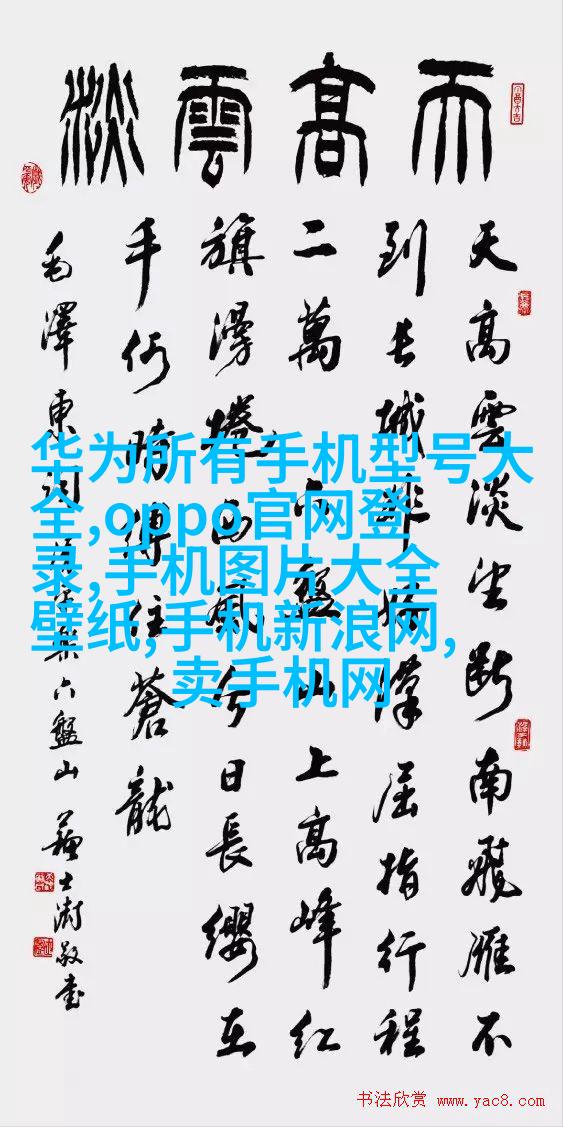 天高雲淡
天高雲淡望斷南飛雁不
到長城非好漢屈指行程
二萬 六盤山上高峰紅
旗漫捲西風今日長纓在
手何時縛住蒼龍
毛澤東詞清平樂六盤山 蘇士澍敬書
华为所有手机型号大
全,oppo官网登
录,手机图片大全
壁纸,手机新浪网,
卖手机网
书法欣赏 www.yac8.com